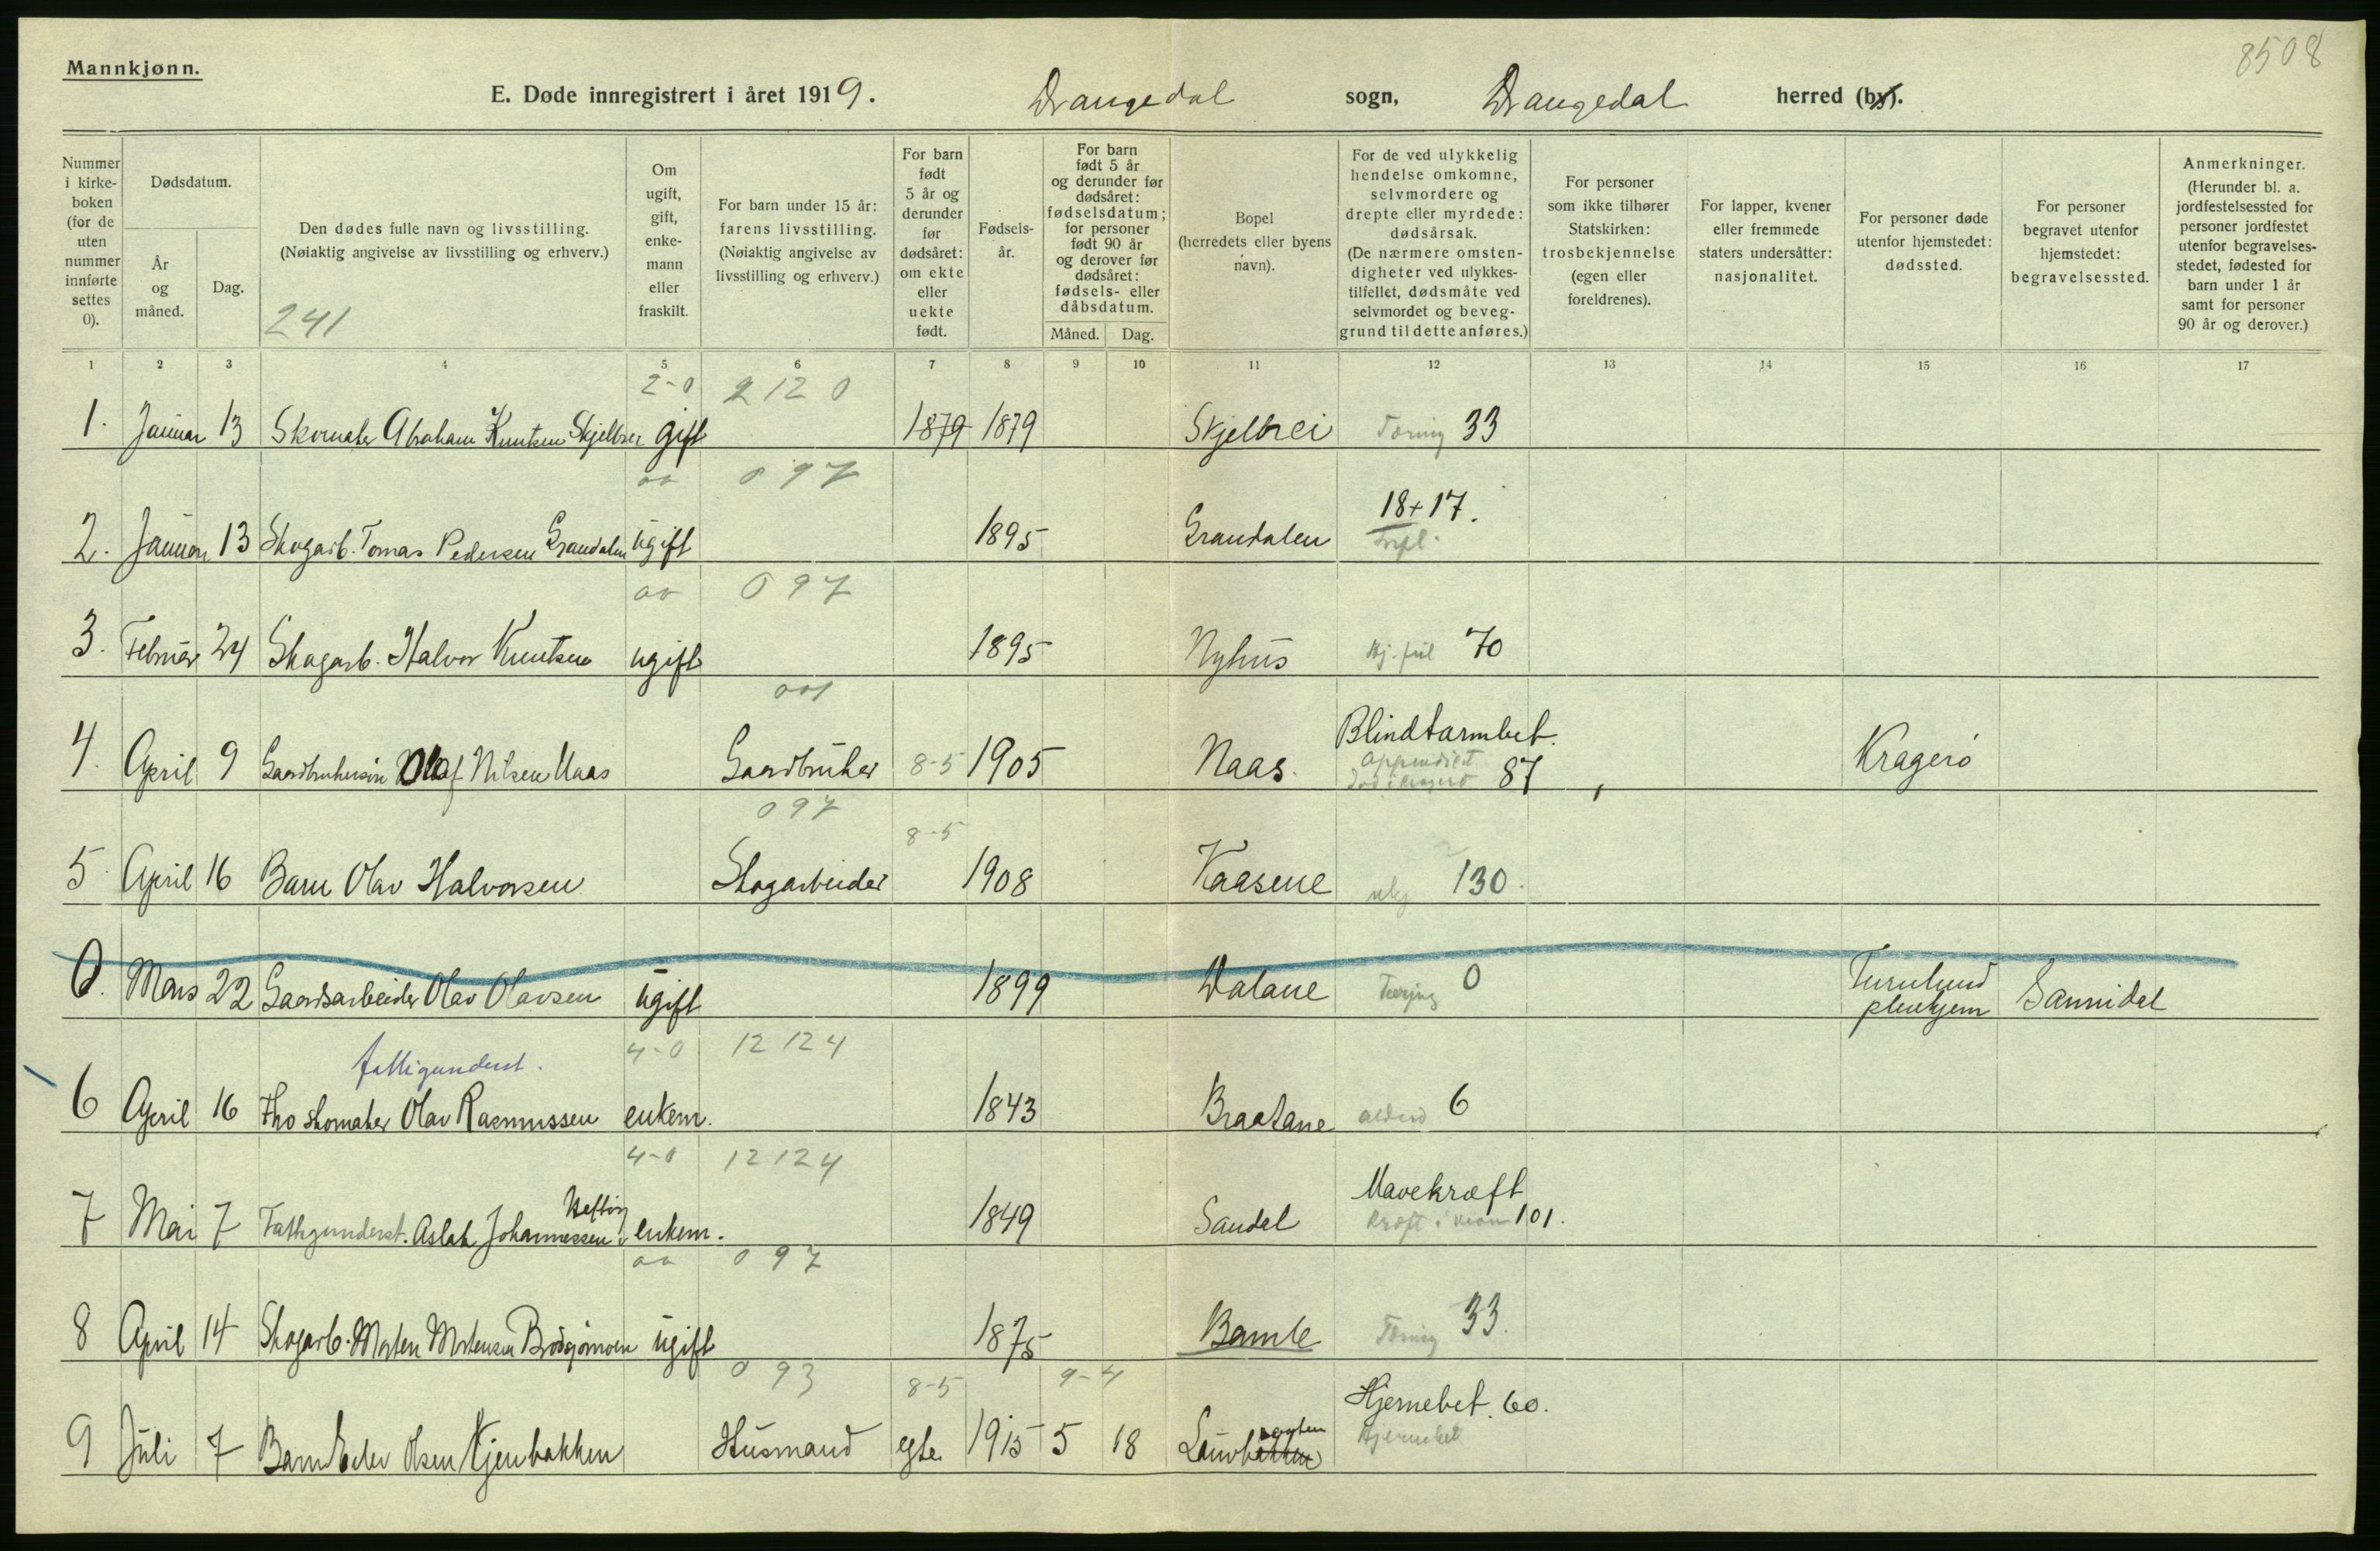 8508
Mannkjønn.
E. Døde innregistrert i året 1919. Drangedal sogn, Drangedal herred (by).
Nummer i kirke-boken (for de uten nummer innførte settes 0).
Dødsdatum.
År og måned.
Dag.
Den dødes fulle navn og livsstilling. (Nøiaktig angivelse av livsstilling og erhverv.)
241
Om ugift, gift, enke-mann eller fraskilt.
For barn under 15 år: farens livsstilling. (Nøiaktig angivelse av livsstilling og erhverv.)
For barn født 5 år og derunder før dødsåret: om ekte eller uekte født.
Fødsels-år.
For barn født 5 år og derunder før dødsåret: fødselsdatum; for personer født 90 år og derover før dødsåret: fødsels- eller dåbsdatum.
Måned. Dag.
Bopel (herredets eller byens navn).
For de ved ulykkelig hendelse omkomne, selvmordere og drepte eller myrdede: dødsårsak. (De nærmere omsten-digheter ved ulykkes-tilfellet, dødsmåte ved selvmordet og beveg-grund til dette anføres.)
For personer som ikke tilhører Statskirken: trosbekjennelse (egen eller foreldrenes).
For lapper, kvener eller fremmede staters undersåtter: nasjonalitet.
For personer døde utenfor hjemstedet: dødssted.
For personer begravet utenfor hjemstedet: begravelsessted.
Anmerkninger. (Herunder bl. a. jordfestelsessted for personer jordfestet utenfor begravelses-stedet, fødested for barn under 1 år samt for personer 90 år og derover.)
1 2 3 4 5 6 7 8 9 10 11 12 13 14 15 16 17
2-0 2 12 0
1. Januar 13 Skomaker Abraham Knutsen Skjelbrei gift 1879 1879 Skjelbrei Tæring 33
097
18+17.
2. Januar 13 Skogarb. Tomas Pedersen Grandalen ugift 1895 Grandalen
097
3. Februar 24 Skogarb. Halvor Knutsen ugift 1895 Nyhus 70
001
Blindtarmbet.
4. April 9 Gaardbrukersøn Olaf Nilsen Naas Gaardbruker 8-5 1905 Naas. Appendicit 87 Kragerø
097 8-5
5 April 16 Barn Olav Halvorsen Skogarbeider 1908 Kaasene 130.
0. Mars 22 Gaardsarbeider Olav Olavsen ugift 1899 Dalane Tæring 0 pleiehjem Sannidal
4-0 12 124
fattigunderst.
6 April 16 Fho skomaker Olav Rasmussen enkem. 1843 Braatane alderd 6
4-0 12 124
Mavekræft
7 Mai 7 Fattigunderst. Aslak Johannessen enkem. 1849 Sandal 101.
097
8 April 14 Skogarb. Morten Mortensen ugift 1875 Bamle Tæring 33.
093 8-5 9-4
Hjernebet. 60.
9 Juli 7 Barn Olsen Kjenbakken Husmand egte 1915 5 18 Hjernebet